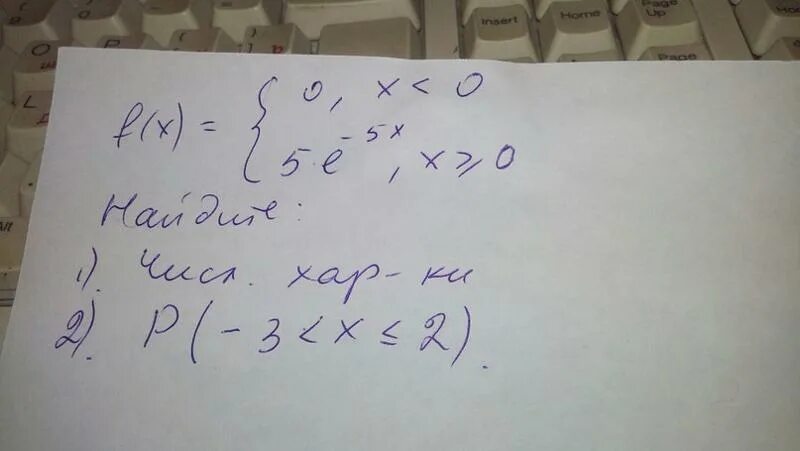 Insert
Home
Page Up
Page
f(x) = { 0, x < 0
5·e^{-5x}, x ⩾ 0
Найдите:
1). Числ. хар-ки
2). P(-3 < x ≤ 2).